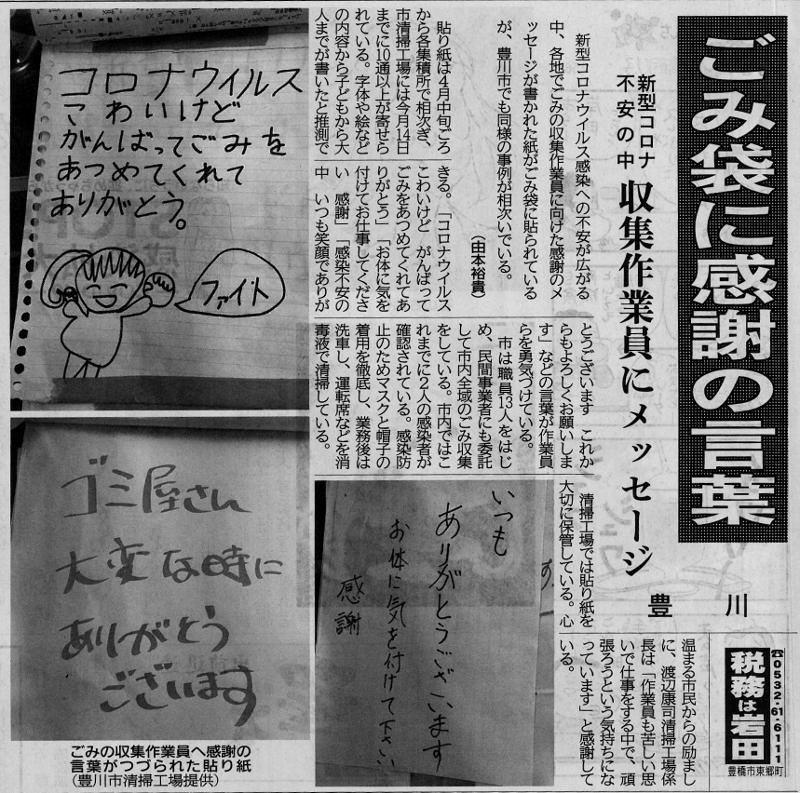 ごみ袋に感謝の言葉
新型コロナ
不安の中
収集作業員にメッセージ
豊川
新型コロナウイルス感染への不安が広がる
中、各地でごみの収集作業員に向けた感謝のメ
ッセージが書かれた紙がごみ袋に貼られている
が、豊川市でも同様の事例が相次いでいる。
(由本裕貴)
貼り紙は4月中旬ごろ
から各集積所で相次ぎ、
市清掃工場には今月14日
までに10通以上が寄せら
れている。字体や絵など
の内容から子どもから大
人までが書いたと推測で
きる。「コロナウイルス
こわいけど がんばって
ごみをあつめてくれてあ
りがとう」「お体に気を
付けてお仕事してくださ
い 感謝」「感染不安の
中 いつも笑顔でありが
とうございます これか
らもよろしくお願いしま
す」などの言葉が作業員
らを勇気づけている。
市は職員13人をはじ
め、民間事業者にも委託
して市内全域のごみ収集
をしている。市内ではこ
れまでに2人の感染者が
確認されている。感染防
止のためマスクと帽子の
着用を徹底し、業務後は
洗車し、運転席などを消
毒液で清掃している。
清掃工場では貼り紙を
大切に保管している。心
温まる市民からの励まし
に、渡辺康司清掃工場係
長は「作業員も苦しい思
いで仕事をする中で、頑
張ろうという気持ちにな
っています」と感謝して
いる。
コロナウイルス
こわいけど
がんばってごみを
あつめてくれて
ありがとう。
ファイト
ゴミ屋さん
大変な時に
ありがとう
ございます
いつも
ありがとうございます
お体に気を付けて下さい
感謝
ごみの収集作業員へ感謝の
言葉がつづられた貼り紙
(豊川市清掃工場提供)
☎0532・61・6111
税務は岩田
豊橋市東郷町